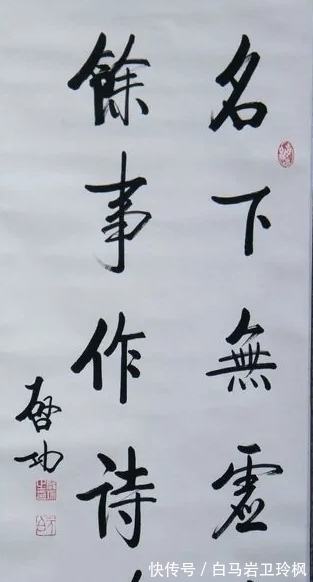 名下無虛
餘事作詩
啓功
快传号／白马岩卫玲枫